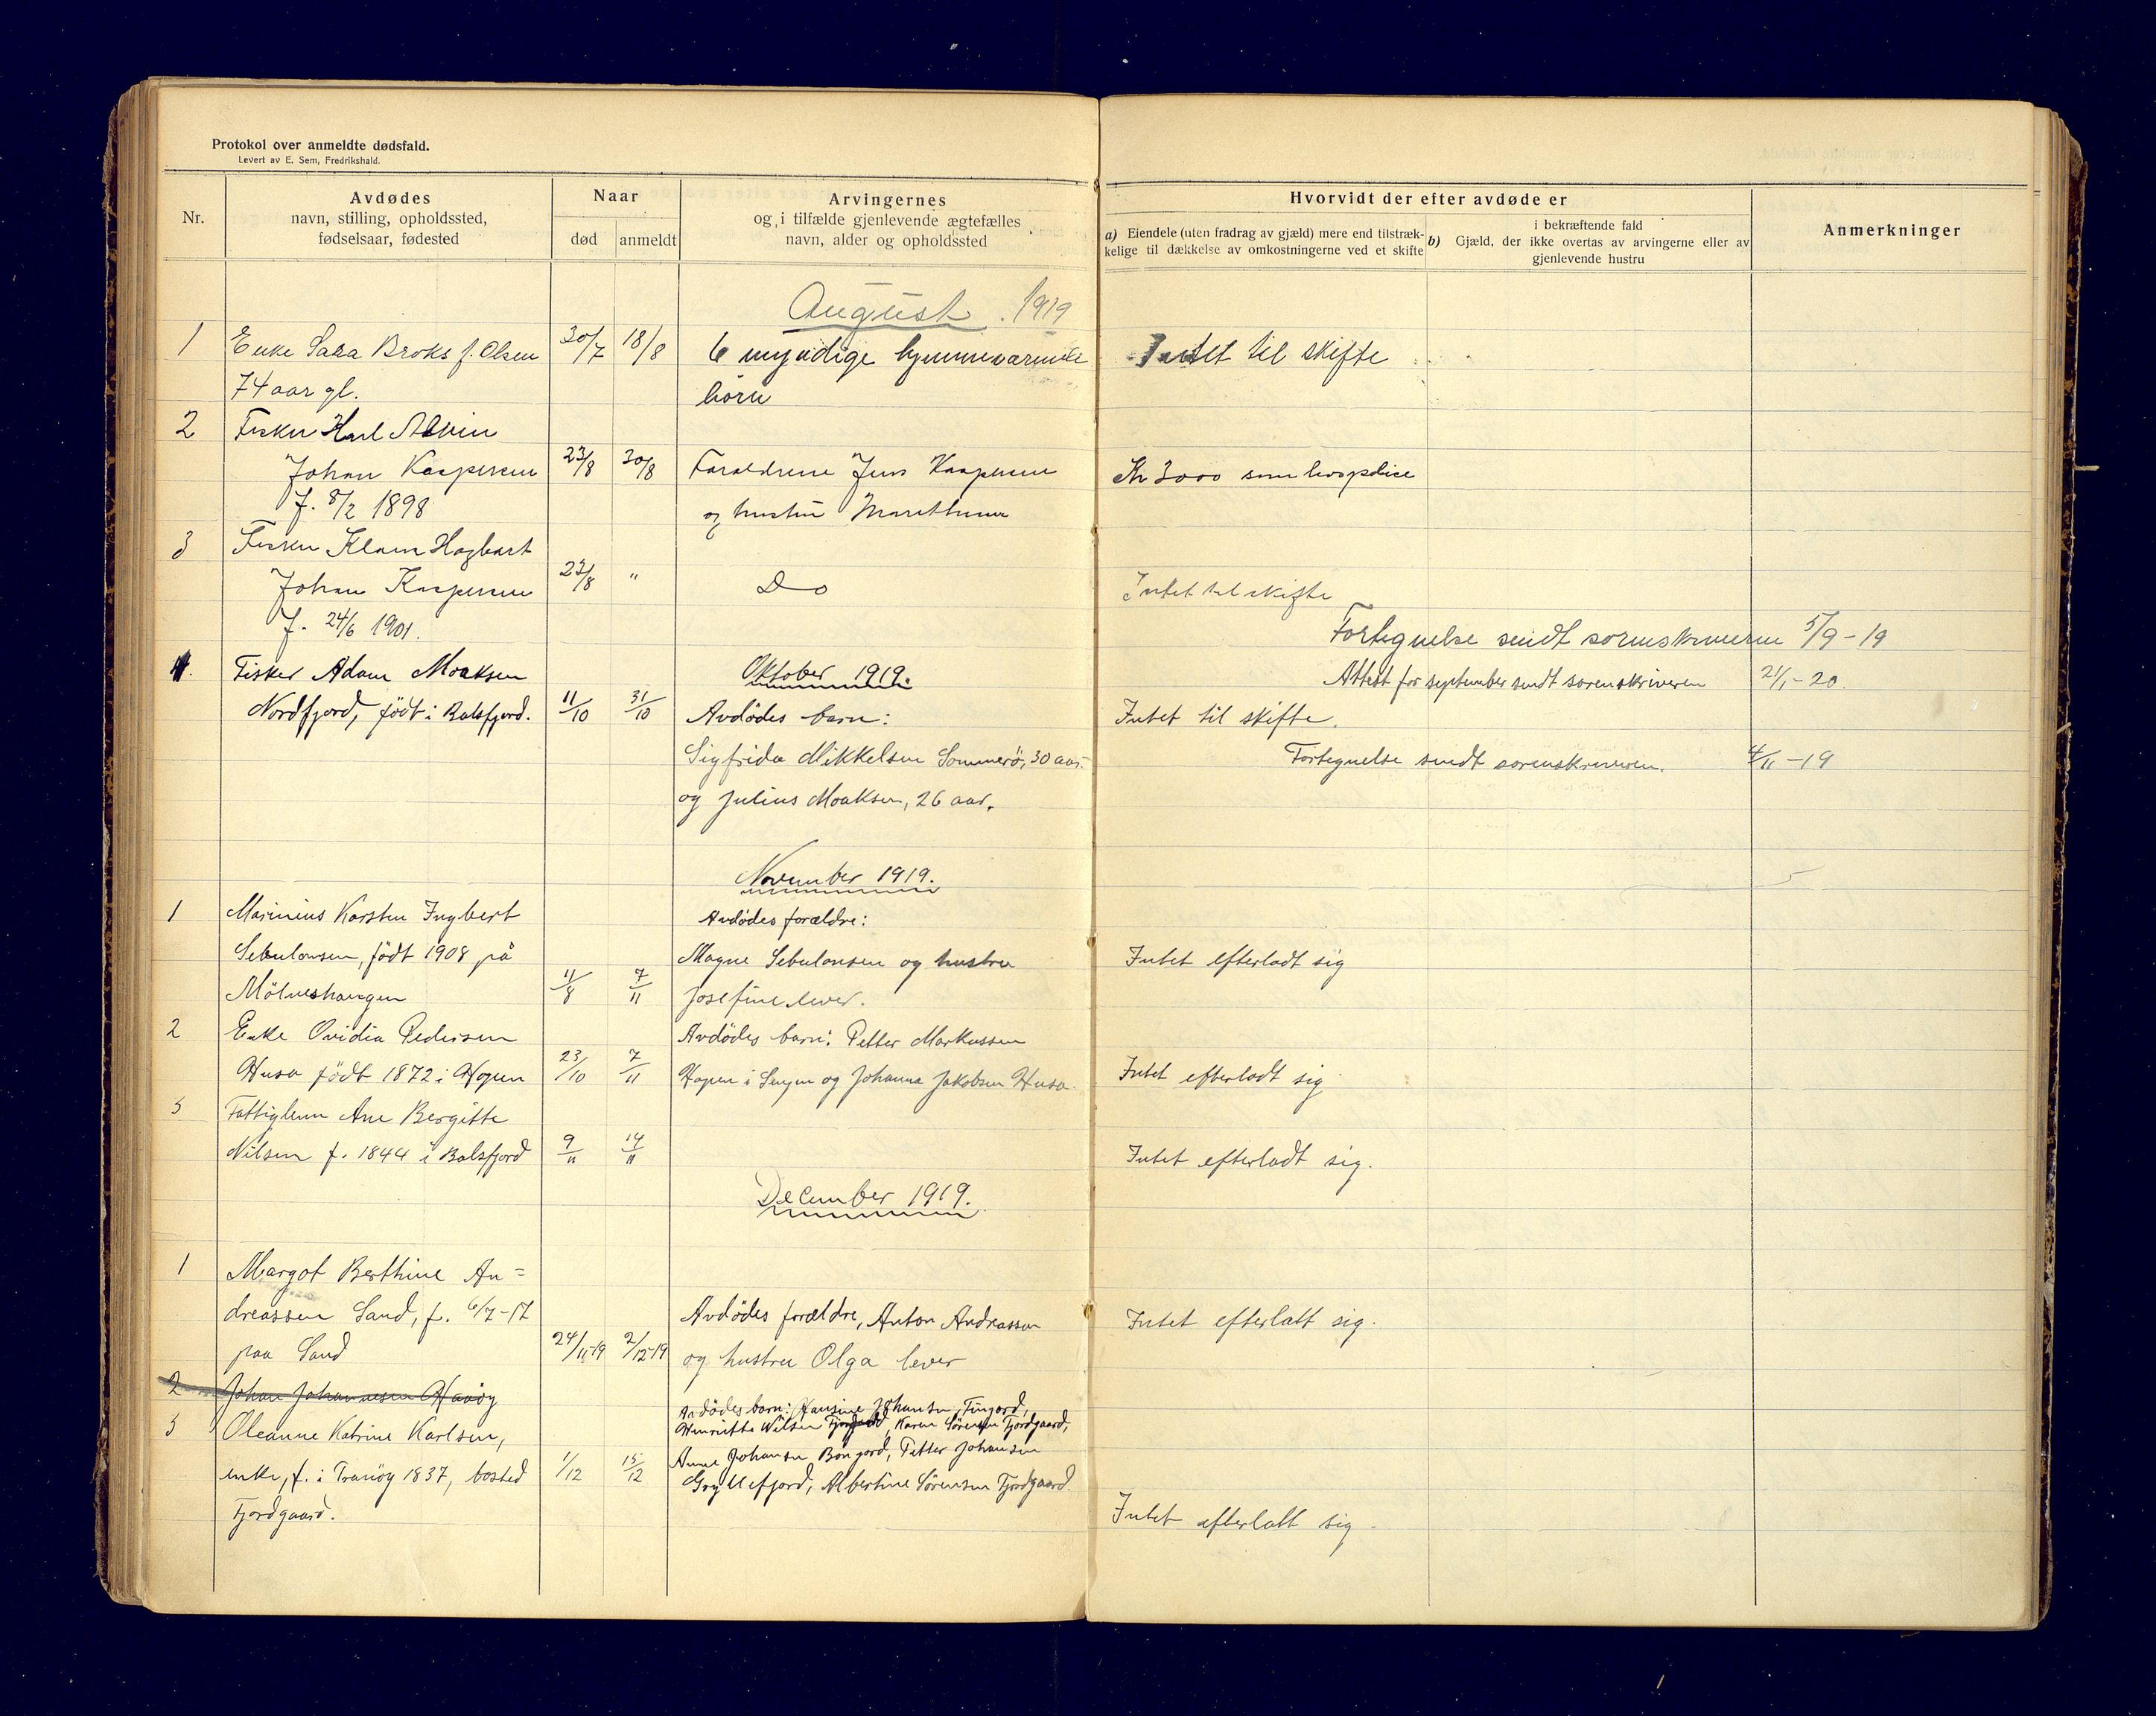 Protokol over anmeldte dødsfald.
Levert av E. Sem, Fredrikshald.
Nr.
Avdødes
navn, stilling, opholdssted,
fødselsaar, fødested
Naar
død
anmeldt
Arvingernes
og i tilfælde gjenlevende ægtefælles
navn, alder og opholdssted
Hvorvidt der efter avdøde er
a) Eiendele (uten fradrag av gjæld) mere end tilstræk-
kelige til dækkelse av omkostningerne ved et skifte
i bekræftende fald
b) Gjæld, der ikke overtas av arvingerne eller av
gjenlevende hustru
Anmerkninger
August 1919
1 Enke Sara Broks f. Olsen 30/7 18/8 6 myndige hjemmeværende Intet til skifte
74 aar gl. børn
2 Fisker Karl Alvin
Johan Kaspersen 23/8 30/8 Forældrene Jens Kaspersen Kr 3000 som
f. 8/2 1898 og hustru
3 Fisker Hagbart
Johan Kaspersen 23/8 " Do Intet til skifte
f. 24/6 1901.
Fortegnelse sendt sorenskriveren 5/9-19
4. Fisker Adam Moaksen Oktober 1919. Attest for september sendt sorenskriveren 21/1-20.
Nordfjord, født i Balsfjord. 11/10 31/10 Avdødes barn: Intet til skifte.
Sigfrida Mikkelsen Sommerø, 30 aar. Fortegnelse sendt sorenskriveren. 4/11-19
og Julius Moaksen, 26 aar.
November 1919.
1 Marinius Karsten Ingbert Avdødes forældre:
Sebulonsen, født 1908 på Magne Sebulonsen og hustru Intet efterladt sig
11/8 7/11 Josefine lever.
2 Enke Ovidia Pedersen Avdødes barn: Petter Markussen
Husø født 1872 i Hopen 23/10 7/11 Hopen i Senjen og Johanna Jakobsen Husø. Intet efterladt sig
3 Fattiglem Ane Bergitte
Nilsen f. 1844 i Balsfjord 9/11 14/11 Intet efterladt sig.
December 1919.
1 Margot Berthine An=
dreassen Sand, f. 6/7-17 Avdødes forældre, Anton Andreassen Intet efterlatt sig.
paa Sand 24/11-19 2/12-19 og hustru Olga lever
2 Johan Johannesen Havøy
Avdødes barn: Jansine Johansen,
3 Oleanne Katrine Karlsen, Henriette Nilsen Karen Sørensen Fjordgaard,
Anne Johansen Petter Johansen
enke, f. i Tranøy 1837, bosted 1/12 15/12 Gryllefjord, Albertine Sørensen Fjordgaard.
Fjordgaard. Intet efterlatt sig.